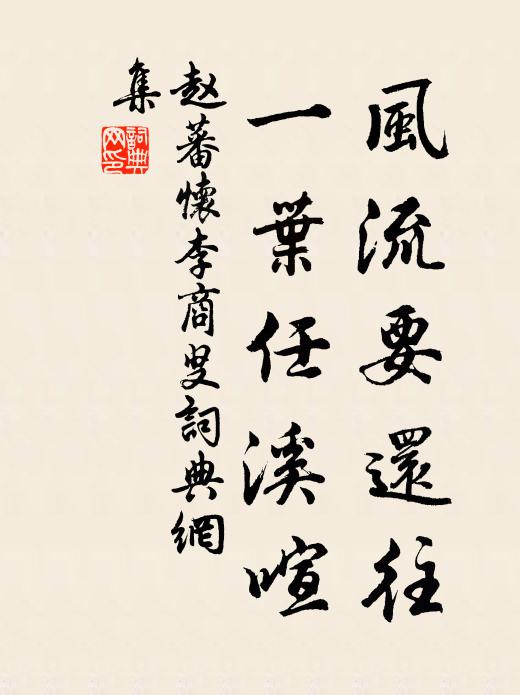 風流要還往
一葉任溪喧
赵蕃懷李商叟詞典網
集
詞典
网印